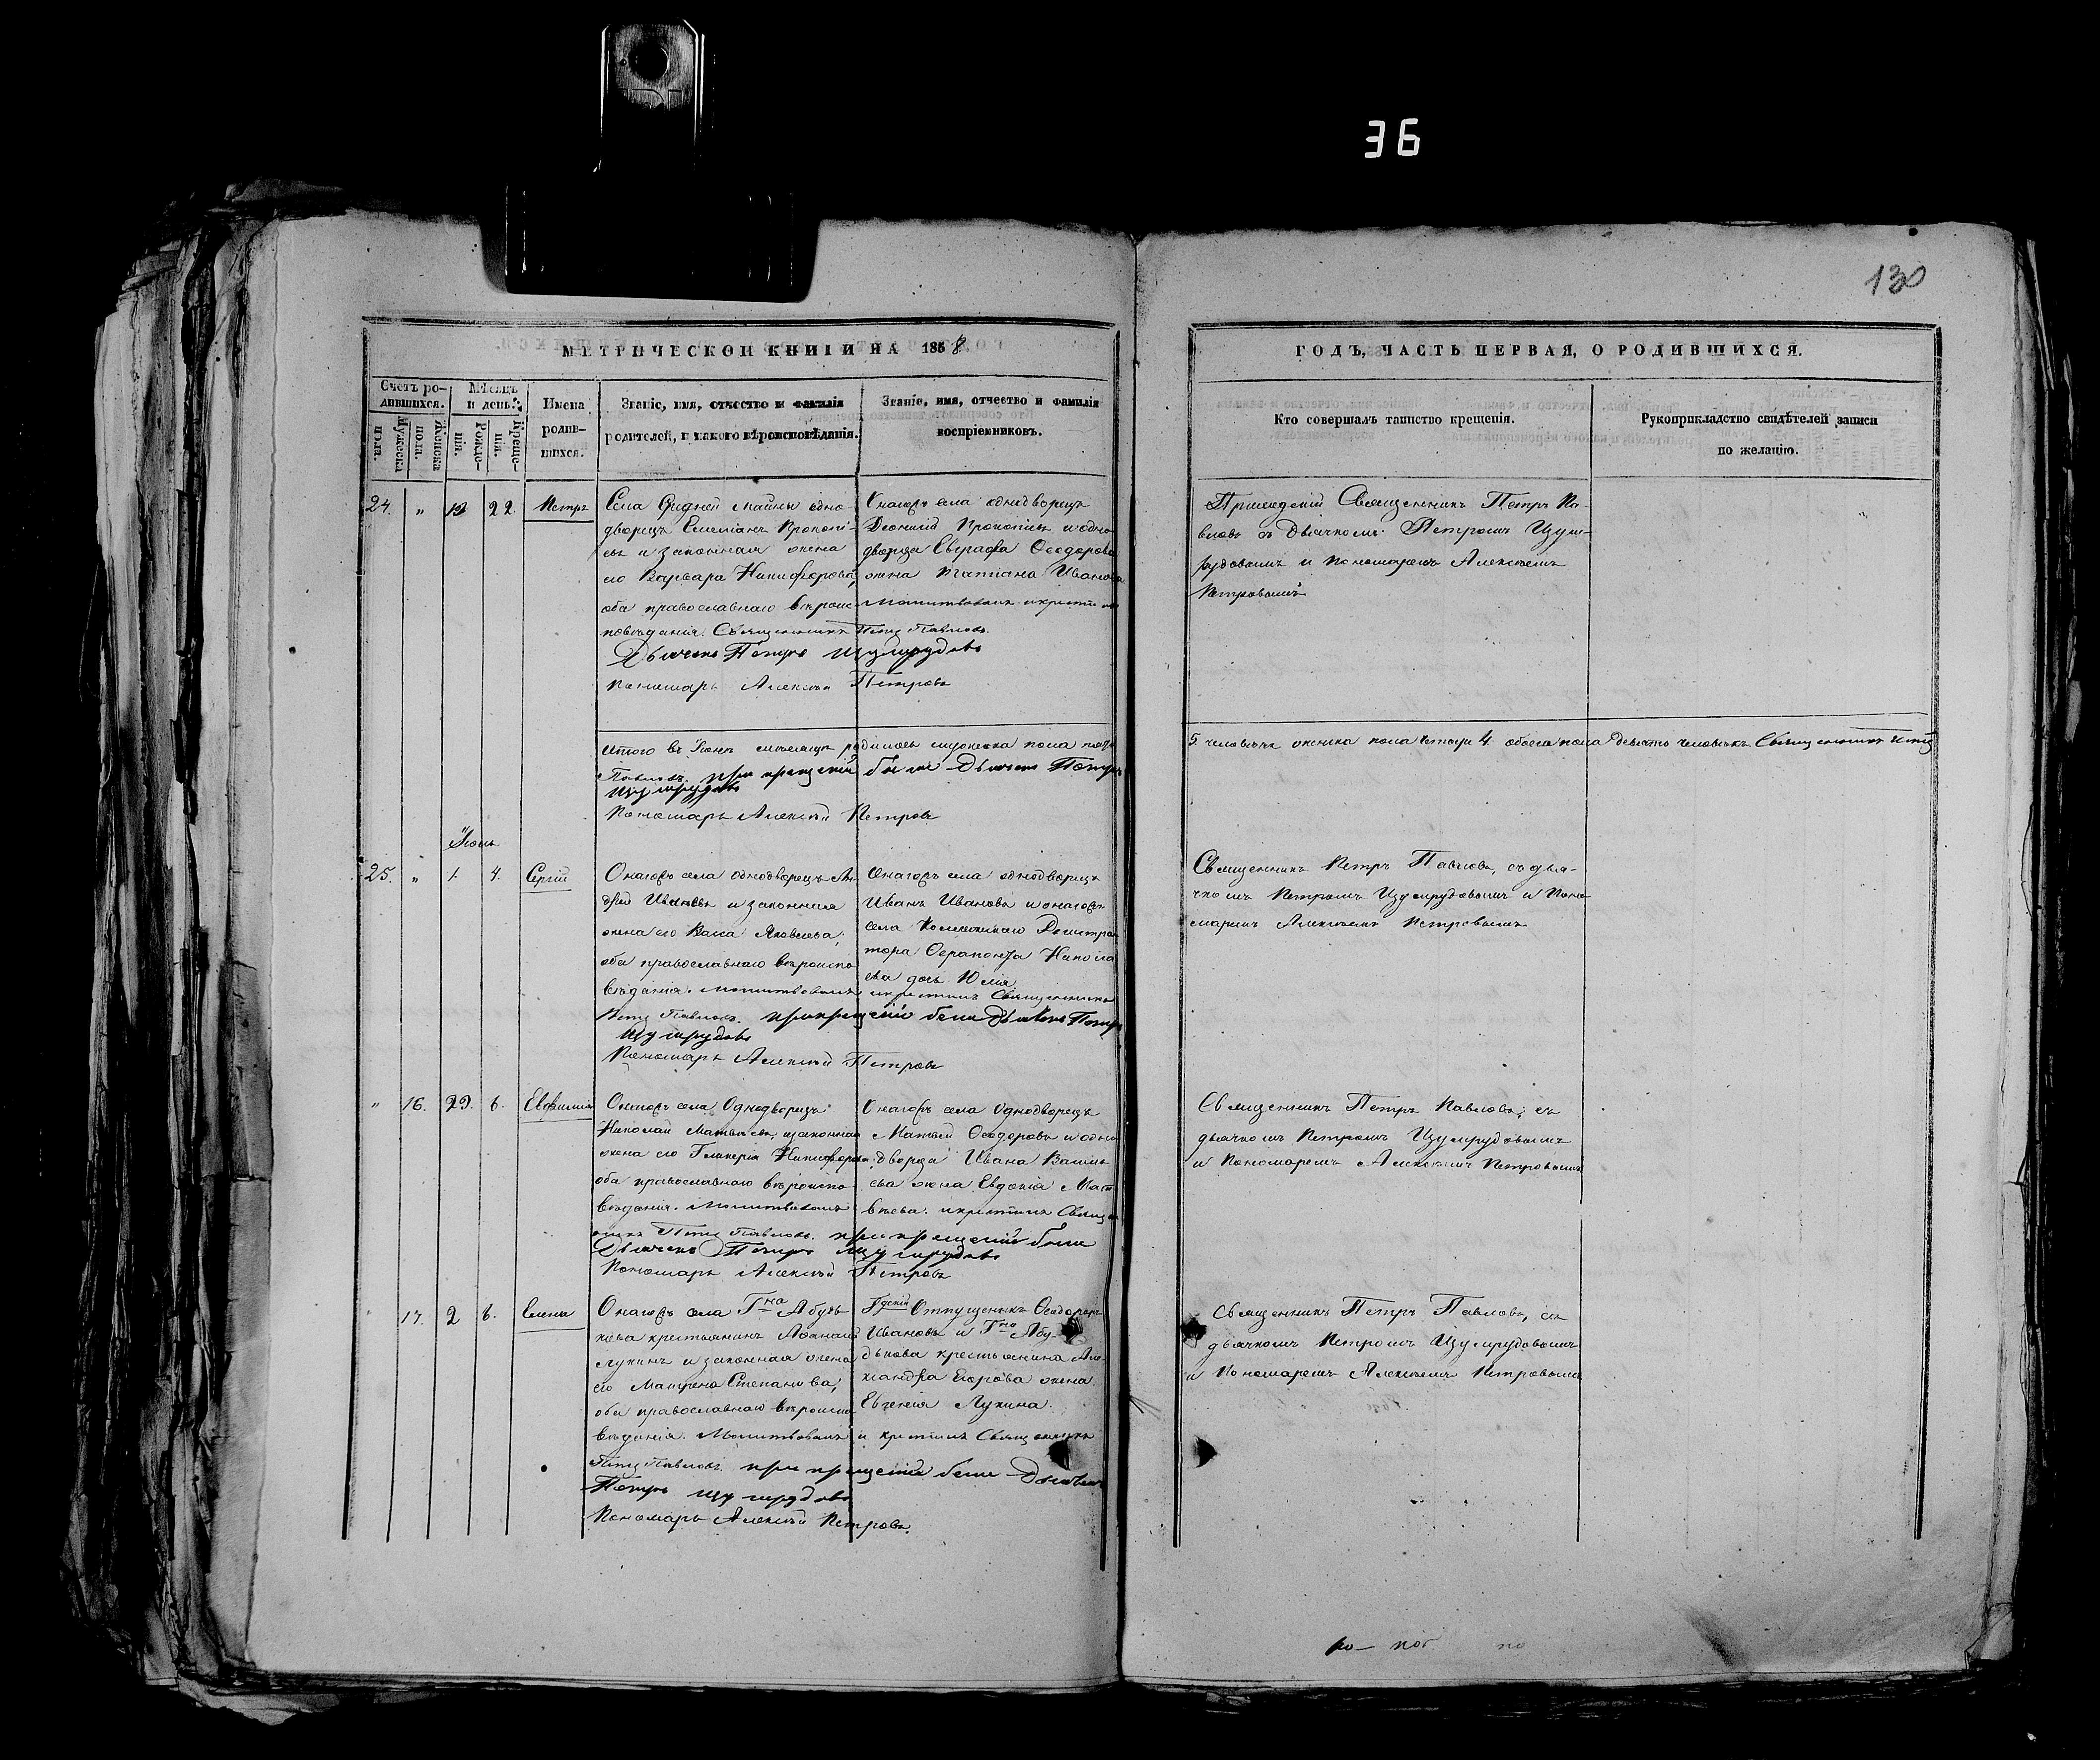 36
130
МЕТРИЧЕСКОЙ КНИГИ НА 1858
Счетъ родившихся.
Мужеска пола.
Женска пола.
Мѣсяцъ и день.
Рожденія.
Крещенія.
Имена родившихся.
Званіе, имя, отчество и фамилія
родителей, и какого вѣроисповѣданія.
Званіе, имя, отчество и фамилія
воспріемниковъ.
24. " 19 22. Петръ
Села Средней Майны одно-
дворецъ Емеліанъ Прокопі-
евъ и законная жена
его Варвара Никифорова,
оба православнаго вѣроис-
повѣданія. Священникъ Петръ Павловъ.
Дьячекъ Петръ Изумрудовъ
Пономарь Алексѣй Петровъ
Онагоръ села однодворецъ
Прокопіевъ и одно-
дворца Евграфа Ѳеодорова
жена Татіана Иванова
Молитвовалъ и крестилъ
Итого въ Іюнѣ мѣсяцѣ родилось мужеска пола пять
Павловъ. при крещеніи были Дьячекъ Петръ
Изумрудовъ
Пономарь Алексѣй Петровъ
Іюль
25. " 1. 4. Сергій
Онагоръ села однодворецъ Ан-
дрей Ивановъ и законная
жена его Васса Яковлева,
оба православнаго вѣроиспо-
вѣданія. Молитвовалъ и крестилъ Священникъ
Петръ Павловъ. при крещеніи были Дьячекъ Петръ
Изумрудовъ
Пономарь Алексѣй Петровъ
Онагоръ села однодворецъ
Иванъ Ивановъ и онагоръ
села Коллежскаго Регистра-
тора Ѳерапонта Никола-
ева дочь Юлія
" 16. 29. 6. Евфимія
Онагоръ села Однодворецъ
Николай Матвѣевъ, и законная
жена его Гликерія Никифорова
оба православнаго вѣроиспо-
вѣданія. Молитвовалъ и крестилъ Священ-
никъ Петръ Павловъ. при крещеніи были
Дьячекъ Петръ Изумрудовъ
Пономарь Алексѣй Петровъ
Онагоръ села Однодворецъ
Матвѣй Ѳеодоровъ и одно-
дворца Ивана Василь-
ева жена Евдокія Мат-
вѣева.
" 17. 2 6. Елена
Онагоръ села Гна
крестьянинъ Аѳанасій
Лукинъ и законная жена
его Матрена Степанова,
оба православнаго вѣроиспо-
вѣданія. Молитвовалъ и крестилъ Священникъ
Петръ Павловъ. при крещеніи были Дьячекъ
Петръ Изумрудовъ
Пономарь Алексѣй Петровъ.
Отпущеникъ Ѳеодоръ
Ивановъ и Гна
крестьянина Але-
ксандра Егорова жена
Евгенія Лукина.
ГОДЪ, ЧАСТЬ ПЕРВАЯ, О РОДИВШИХСЯ.
Кто совершалъ таинство крещенія.
Рукоприкладство свидѣтелей записи
по желанію.
Приходскій Священникъ Петръ Па-
вловъ съ Дьячкомъ Петромъ Изум-
рудовымъ и Пономаремъ Алексѣемъ
Петровымъ
5 человѣкъ женска пола четыре 4. обоего пола девять человѣкъ. Священникъ Петръ
Священникъ Петръ Павловъ, съ дья-
чкомъ Петромъ Изумрудовымъ и Поно-
маремъ Алексѣемъ Петровымъ
Священникъ Петръ Павловъ, съ
дьячкомъ Петромъ Изумрудовымъ
и Пономаремъ Алексѣемъ Петровымъ
Священникъ Петръ Павловъ, съ
дьячкомъ Петромъ Изумрудовымъ
и Пономаремъ Алексѣемъ Петровымъ